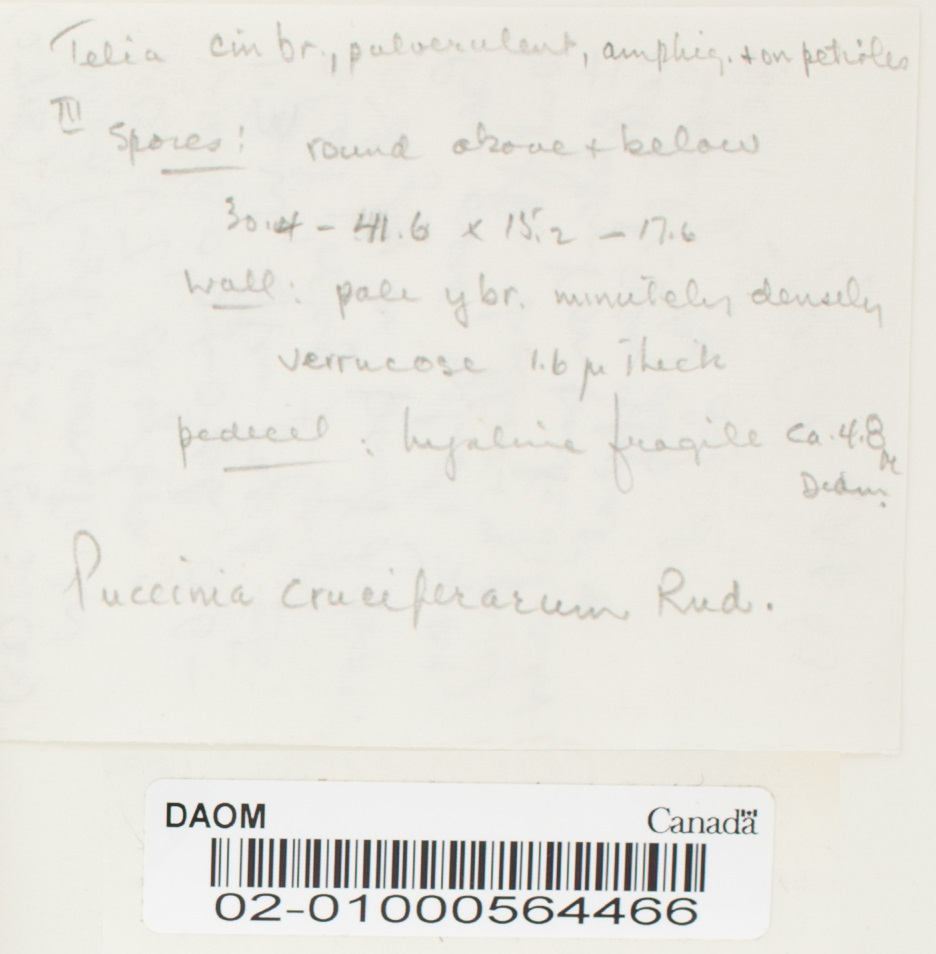 Telia cin br., pulverulent, amphig. + on petioles
III
Spores: round above + below
30.4 - 41.6 x 15.2 - 17.6
Wall: pale y br. minutely densely
verrucose 1.6 μ thick
pedicel: hyaline fragile ca. 4.8 μ
Diam.
Puccinia cruciferarum Rud.
DAOM Canada
02-01000564466